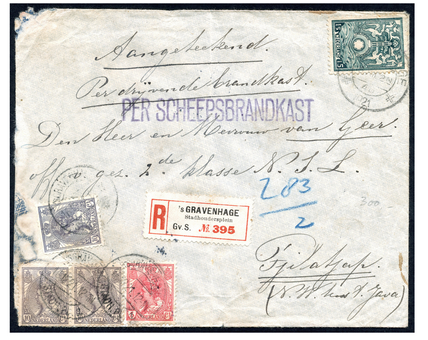 Aangeteekend.
Per drijvende brandkast.
PER SCHEEPSBRANDKAST
Den Heer en Mevrouw van Geer.
off. v. gez. 2de klasse N. I. L.
R
's GRAVENHAGE
Stadhoudersplein
Gv.S. № 395
283
2
300
Tjilatjap.
Java)